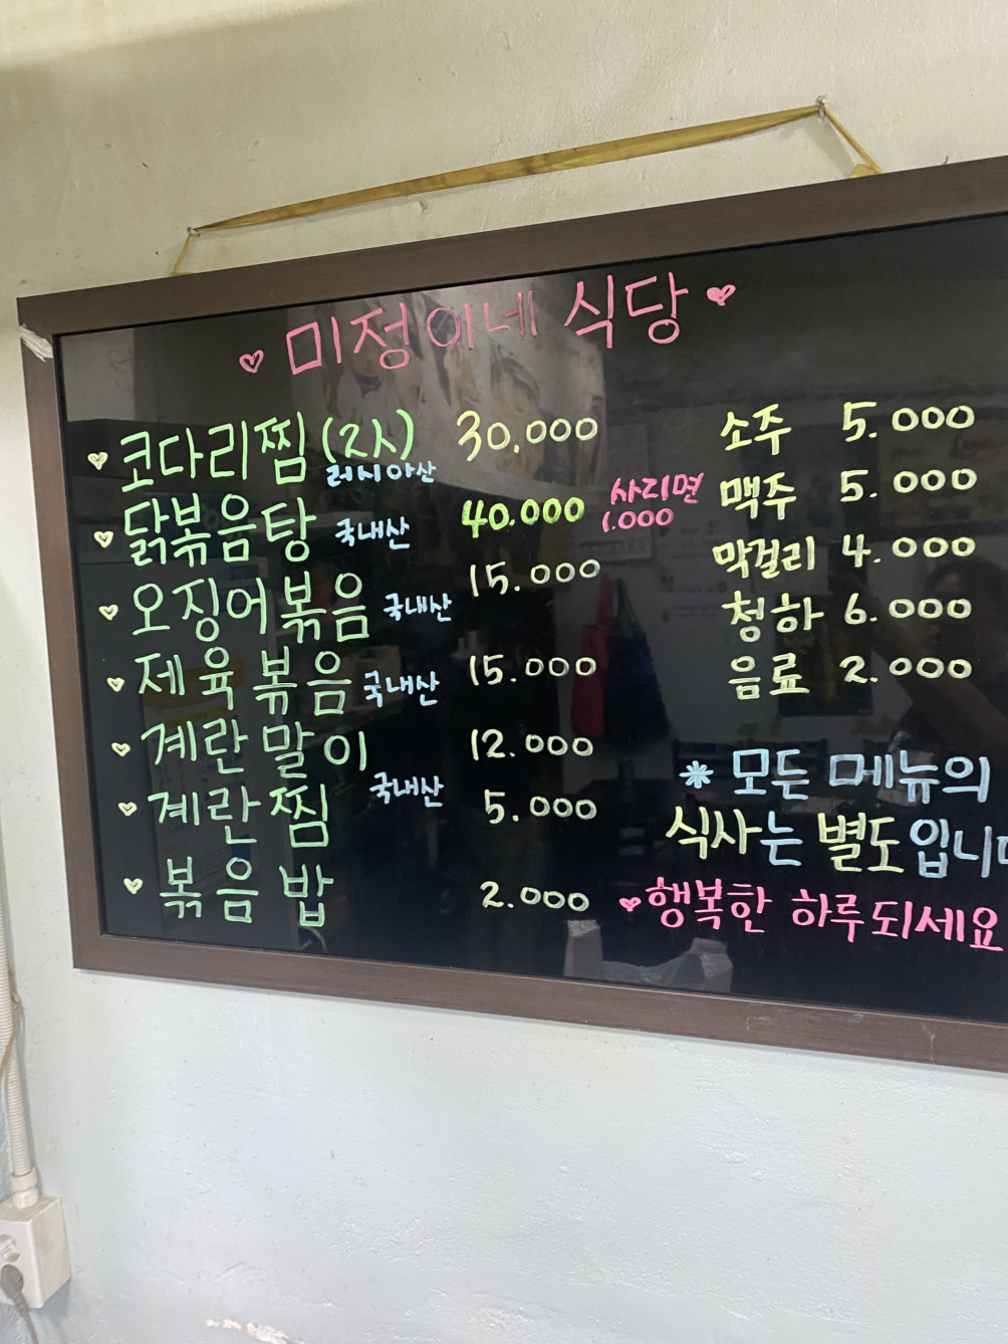 미정이네 식당
코다리찜(2人) 30,000
러시아산
닭볶음탕 국내산 40.000 사리면
1.000
오징어볶음 국내산 15.000
제육볶음 국내산 15.000
계란말이 12.000
국내산
계란찜 5.000
볶음밥 2.000
소주 5.000
맥주 5.000
막걸리 4.000
청하 6.000
음료 2.000
※ 모든 메뉴의
식사는 별도입니
행복한 하루되세요